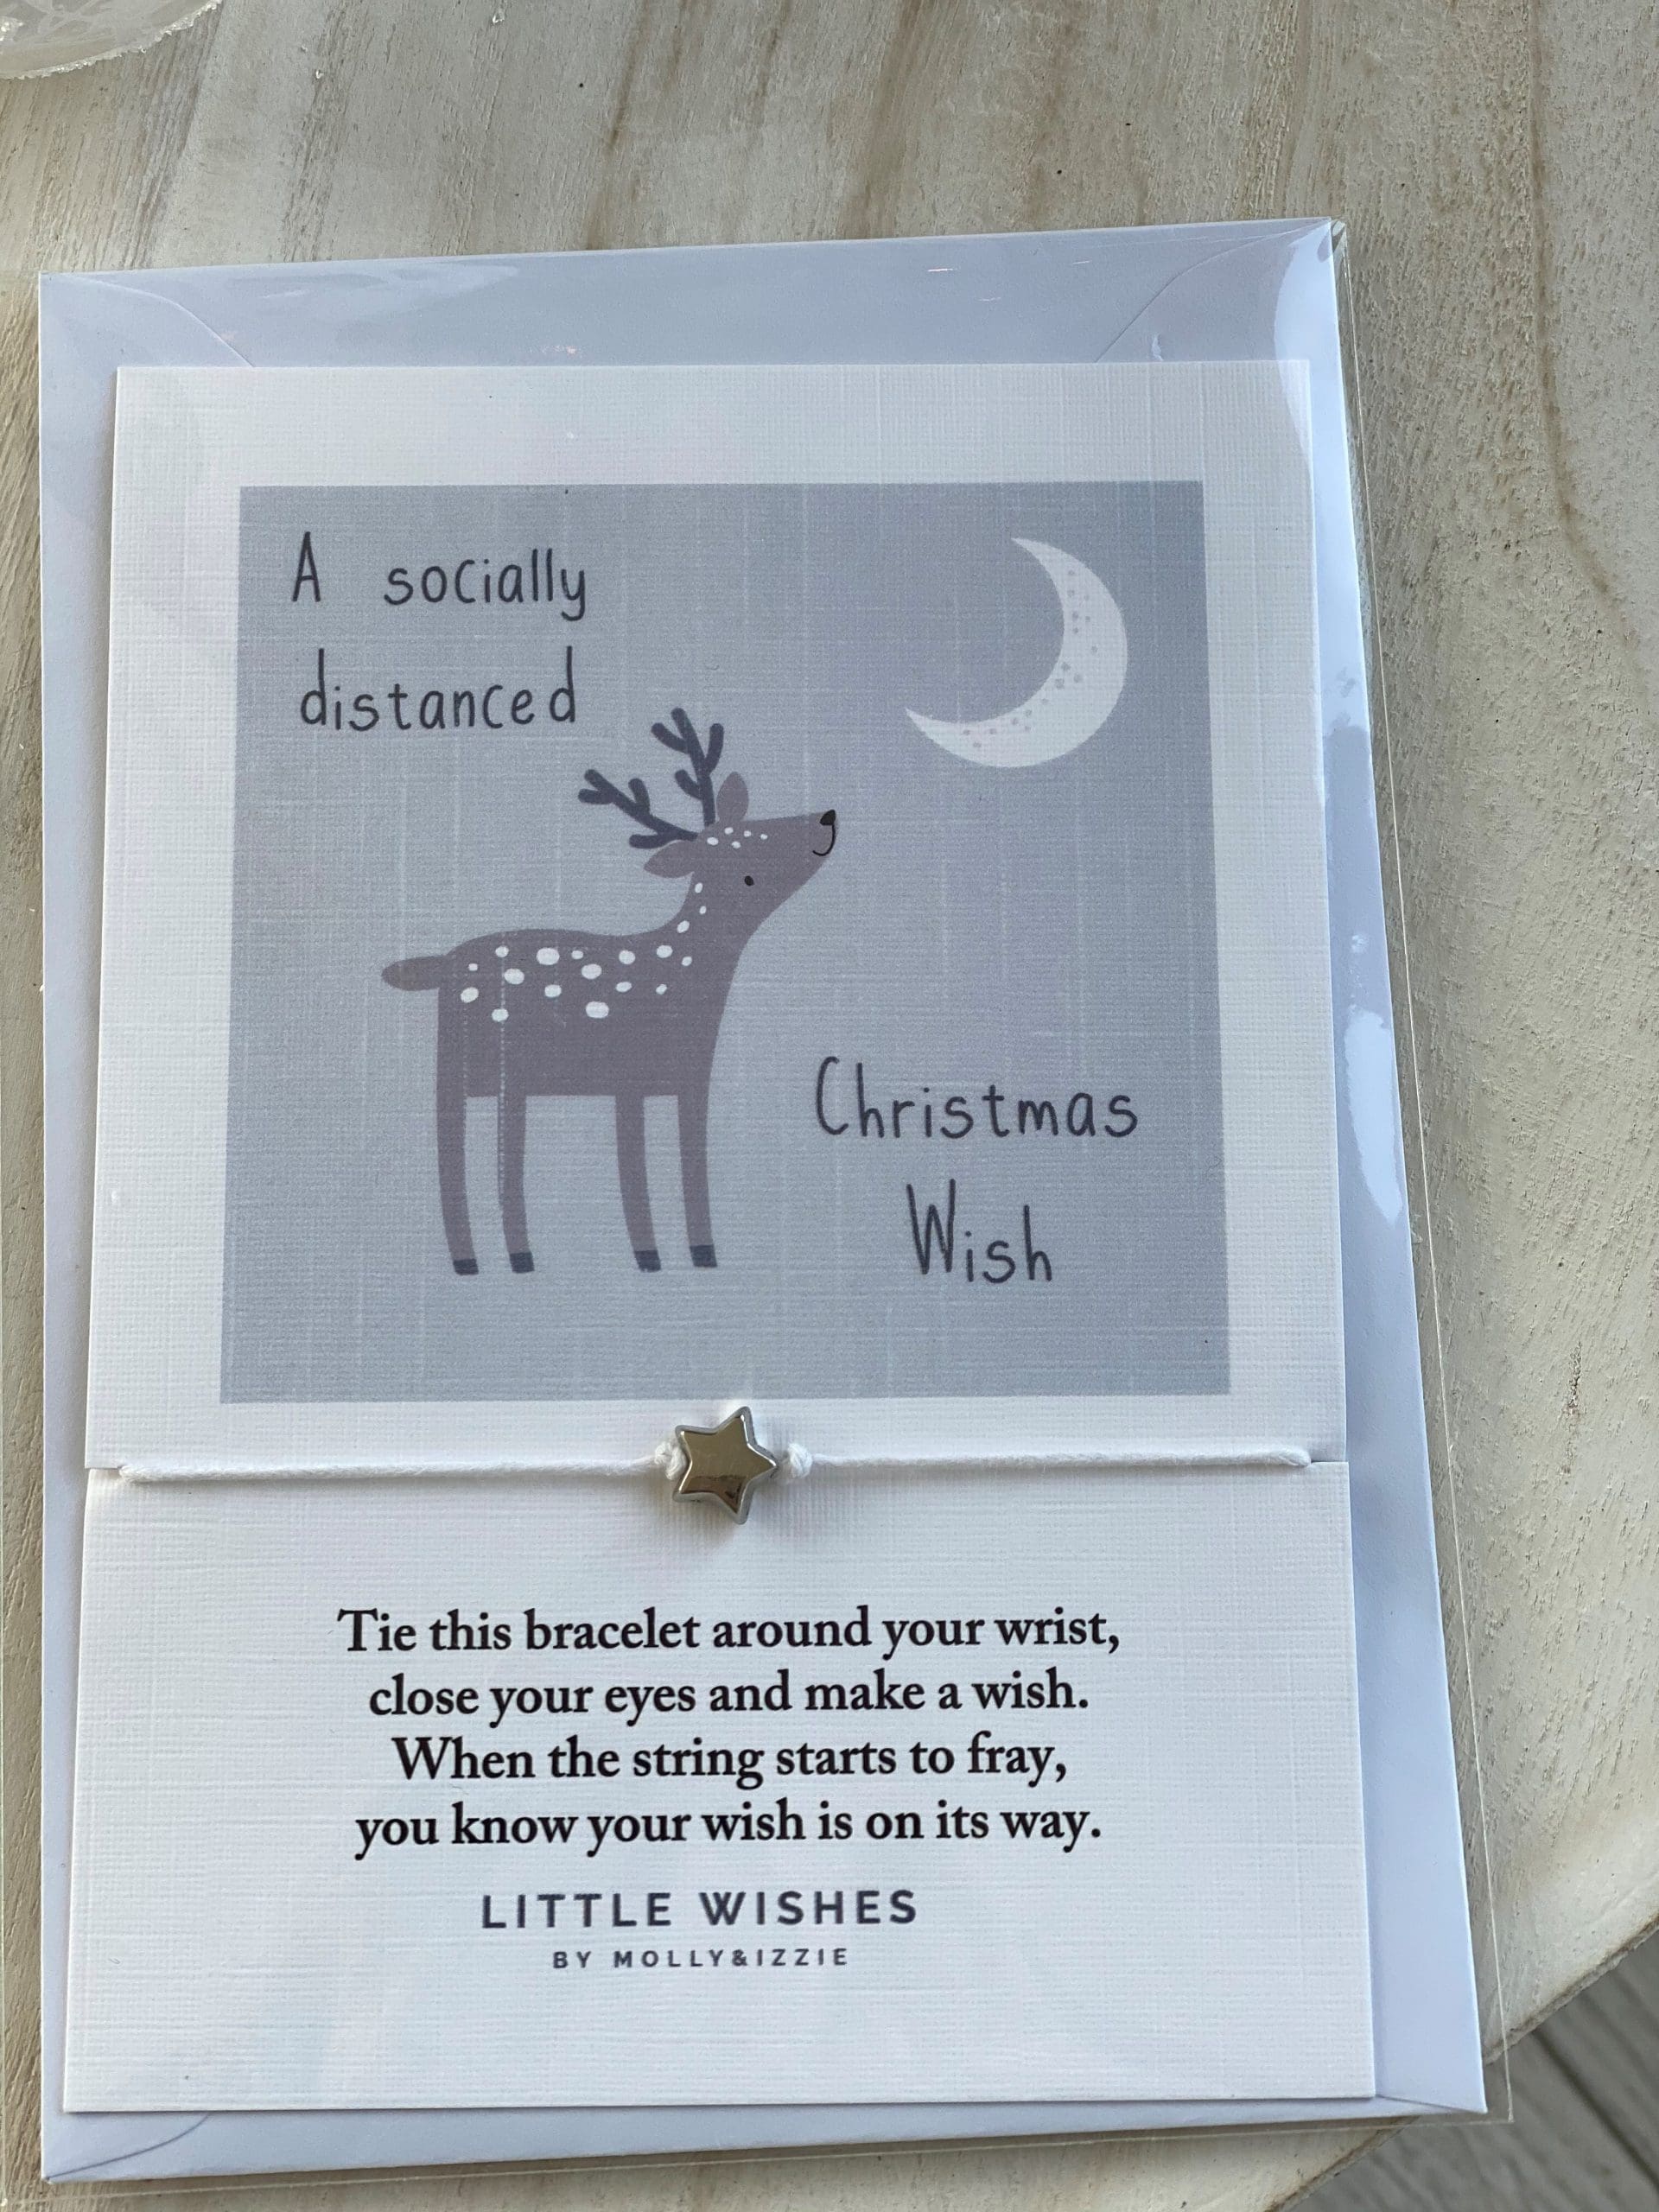 A socially
distanced
Christmas
Wish
Tie this bracelet around your wrist,
close your eyes and make a wish.
When the string starts to fray,
you know your wish is on its way.
LITTLE WISHES
BY MOLLY&IZZIE